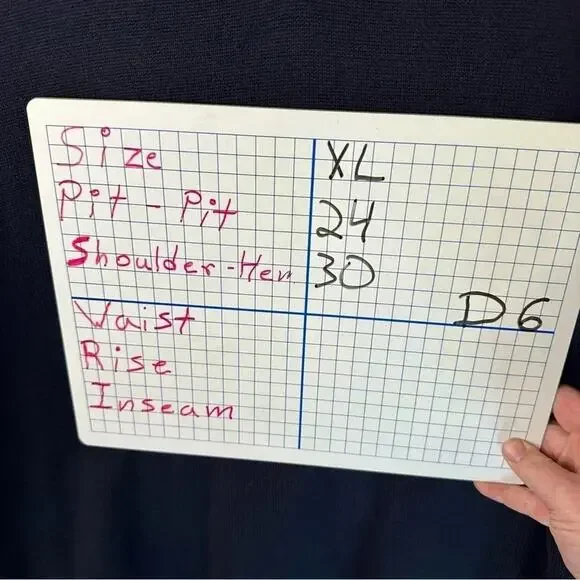 Size XL
Pit - Pit 24
Shoulder-Hem 30
D6
Waist
Rise
Inseam